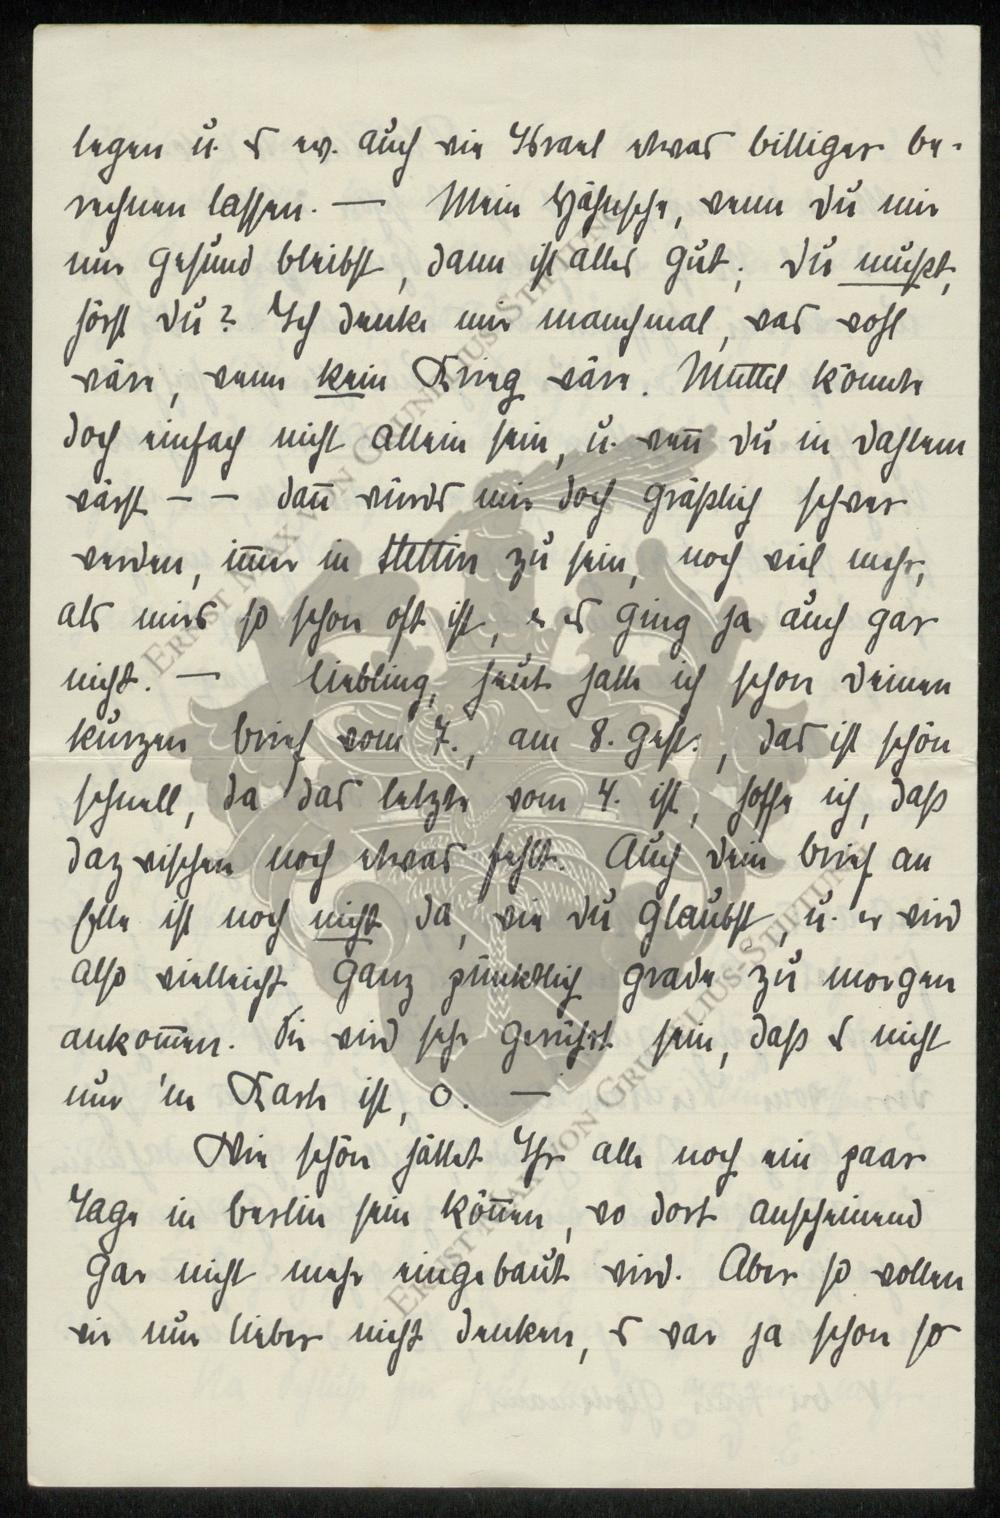 legen u. es ev. auch wie Israel etwas billiger be-
rechnen lassen. — Mein Hähnsche, wenn Du mir
nur gesund bleibst, dann ist alles gut; Du mußt,
hörst Du? Ich denke mir manchmal, was wohl
wäre, wenn kein Krieg wäre. Muttel könnte
doch einfach nicht allein sein, u. weñ Du in Dahlem
wärst — — dañ würds mir doch gräßlich schwer
werden, im̃er in Stettin zu sein, noch viel mehr,
als mirs so schon oft ist, es ging ja auch gar
nicht. — Liebling, heut hatte ich schon Deinen
kurzen Brief vom 7., am 8. gest., das ist schön
schnell, da das letzte vom 4. ist, hoffe ich, daß
dazwischen noch etwas fehlt. Auch Dein Brief an
Elle ist noch nicht da, wie Du glaubst, u. er wird
also vielleicht ganz pünktlich grade zu morgen
ankom̃en. Sie wird sehr gerührt sein, daß es nicht
nur 'ne Karte ist, o. —
Wie schön hättet Ihr alle noch ein paar
Tage in Berlin sein köñen, wo dort anscheinend
gar nicht mehr eingebaut wird. Aber so wollen
wir nun lieber nicht denken, es war ja schon so
Ernst Max von Grunelius-Stiftung
Ernst Max von Grunelius-Stiftung